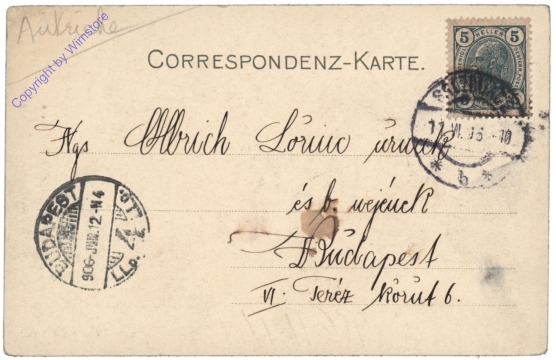 Autriche
Copyright by Wimstore
CORRESPONDENZ-KARTE.
5 HELLER 5
11 VI 06 -10
* b *
Ngs Olbrich Lőrinc úrnak
és b. nejének
Budapest
VI. Teréz körut 6.
BUDAPEST
906 JUN. 12-N4